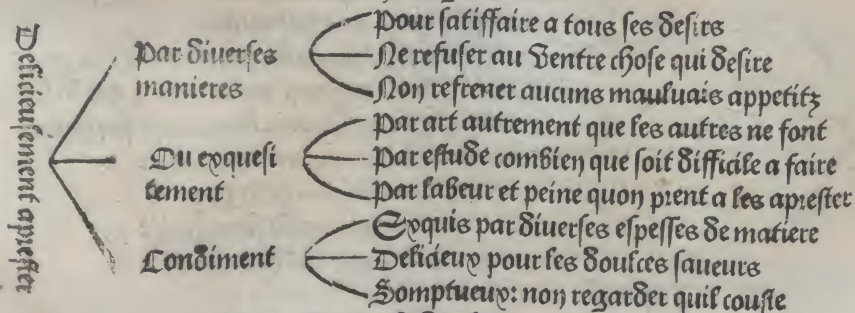 Delicieusement aprester
Par diuerses
manieres
Pour satiffaire a tous ses desirs
Ne refuser au ventre chose qui desire
Non refrener aucuns mauluais appetitz
Ou exquesi
tement
Par art autrement que les autres ne font
Par estude combien que soit difficile a faire
Par labeur et peine quon prent a les aprester
Condiment
Exquis par diuerses espesses de matiere
Delicieux pour les doulces saueurs
Somptueux: non regarder quil couste